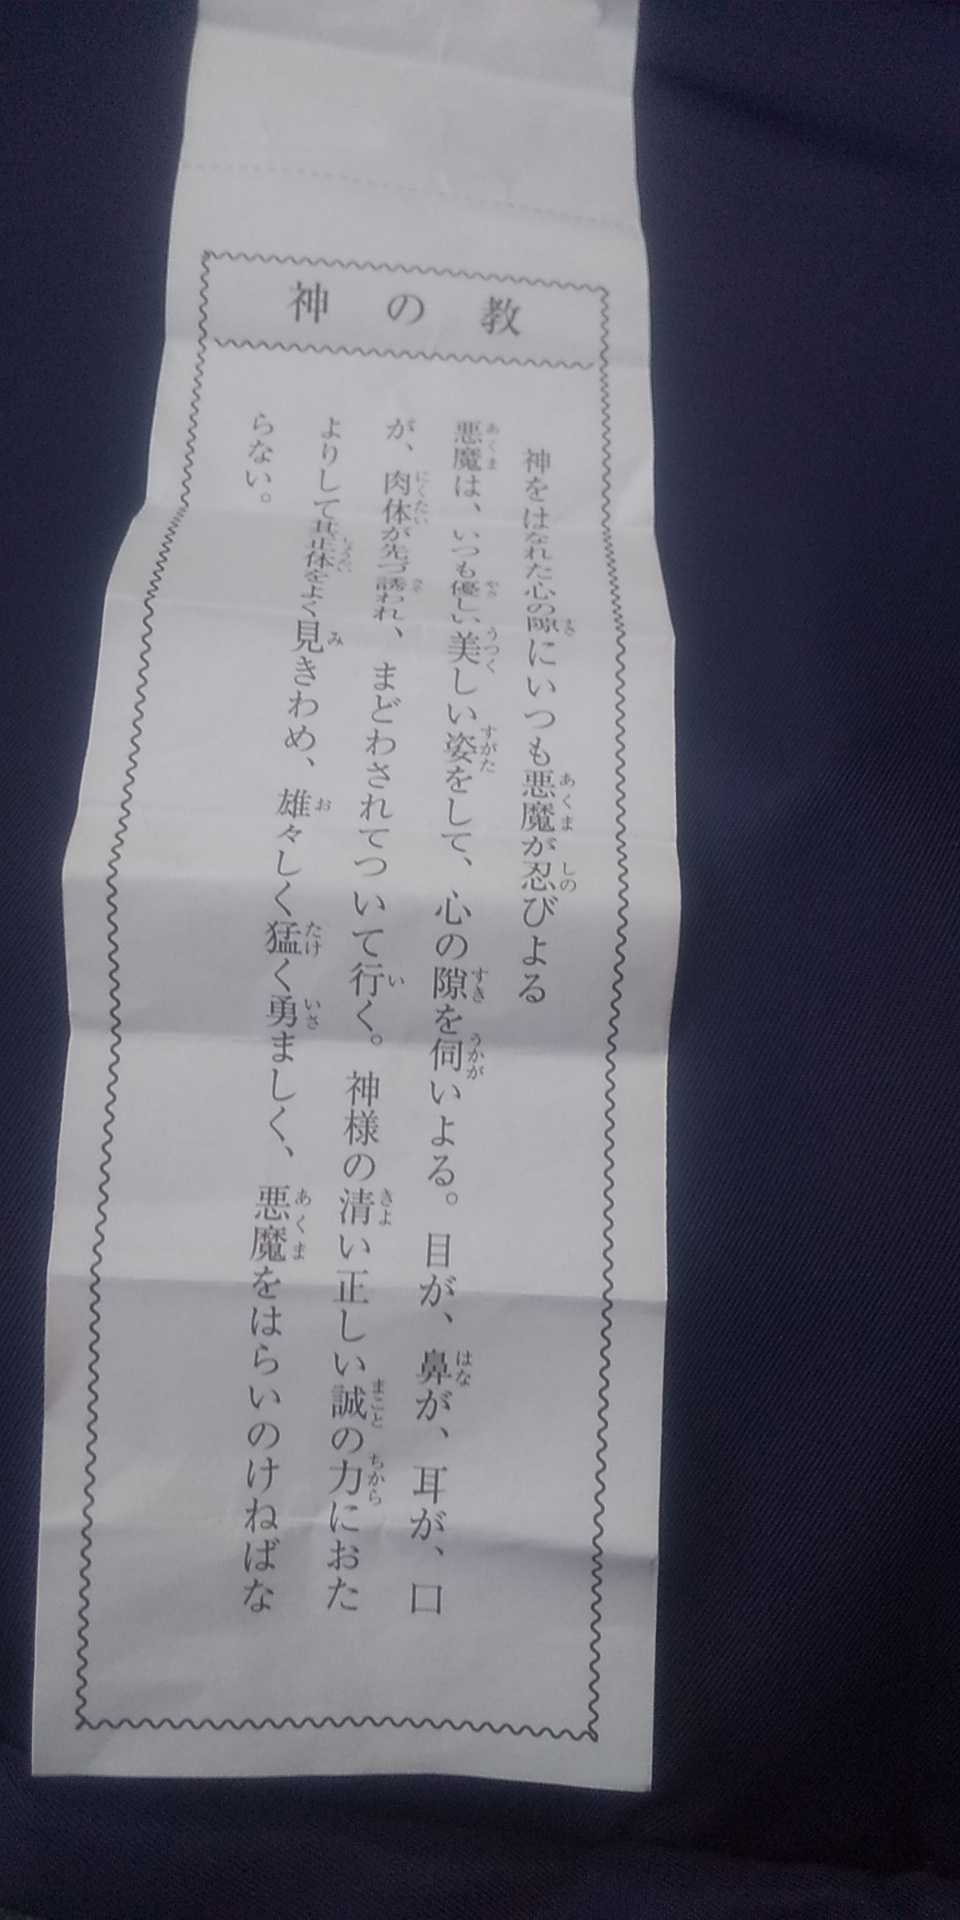 神の教
神をはなれた心の隙にいつも悪魔が忍びよる
悪魔は、いつも優しい美しい姿をして、心の隙を伺いよる。目が、鼻が、耳が、口
が、肉体が先づ誘われ、まどわされてついて行く。神様の清い正しい誠の力におた
よりして其正体をよく見きわめ、雄々しく猛く勇ましく、悪魔をはらいのけねばな
らない。